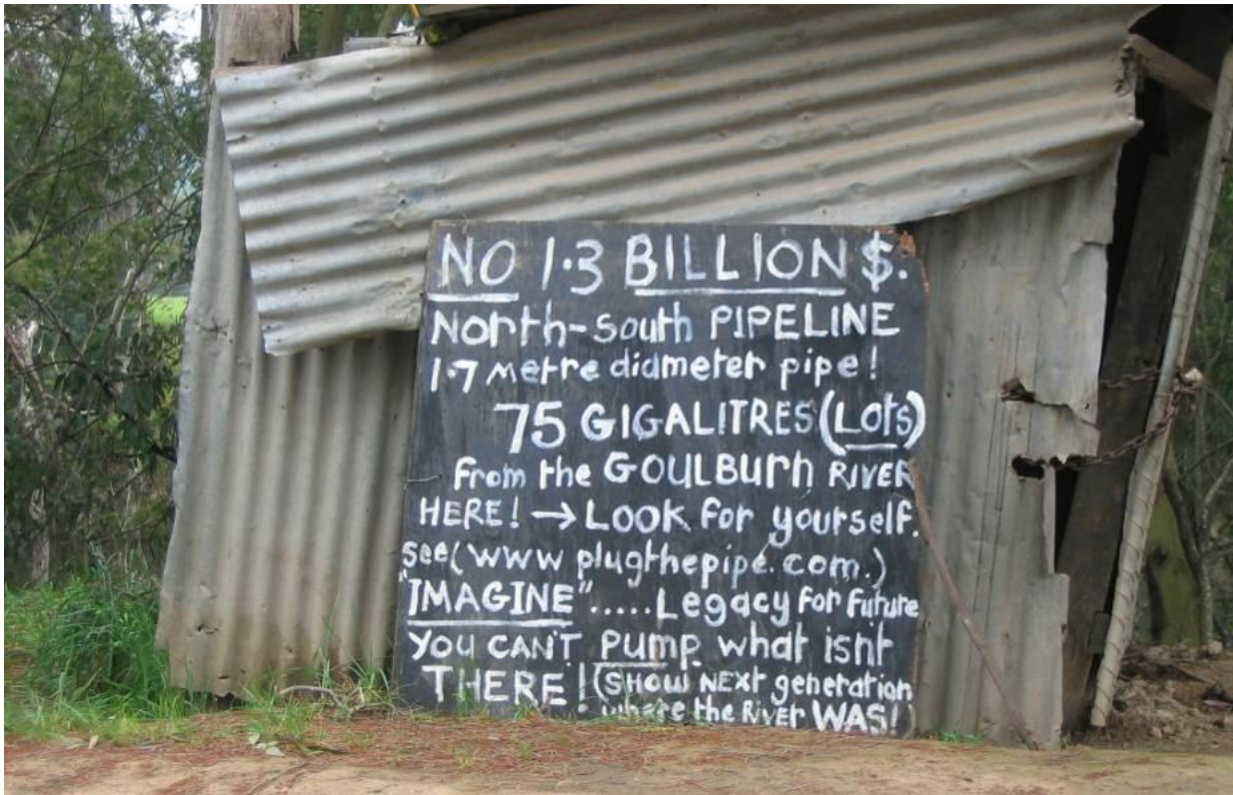 NO 1.3 BILLION $.
North-south PIPELINE
1.7 metre diameter pipe!
75 GIGALITRES (LOTS)
from the GOULBURN RIVER
HERE! → LOOK for yourself.
see (www plugthepipe.com.)
"IMAGINE"..... Legacy for future
YOU CAN'T PUMP what isn't
THERE! (SHOW NEXT generation
where the RIVER WAS!)